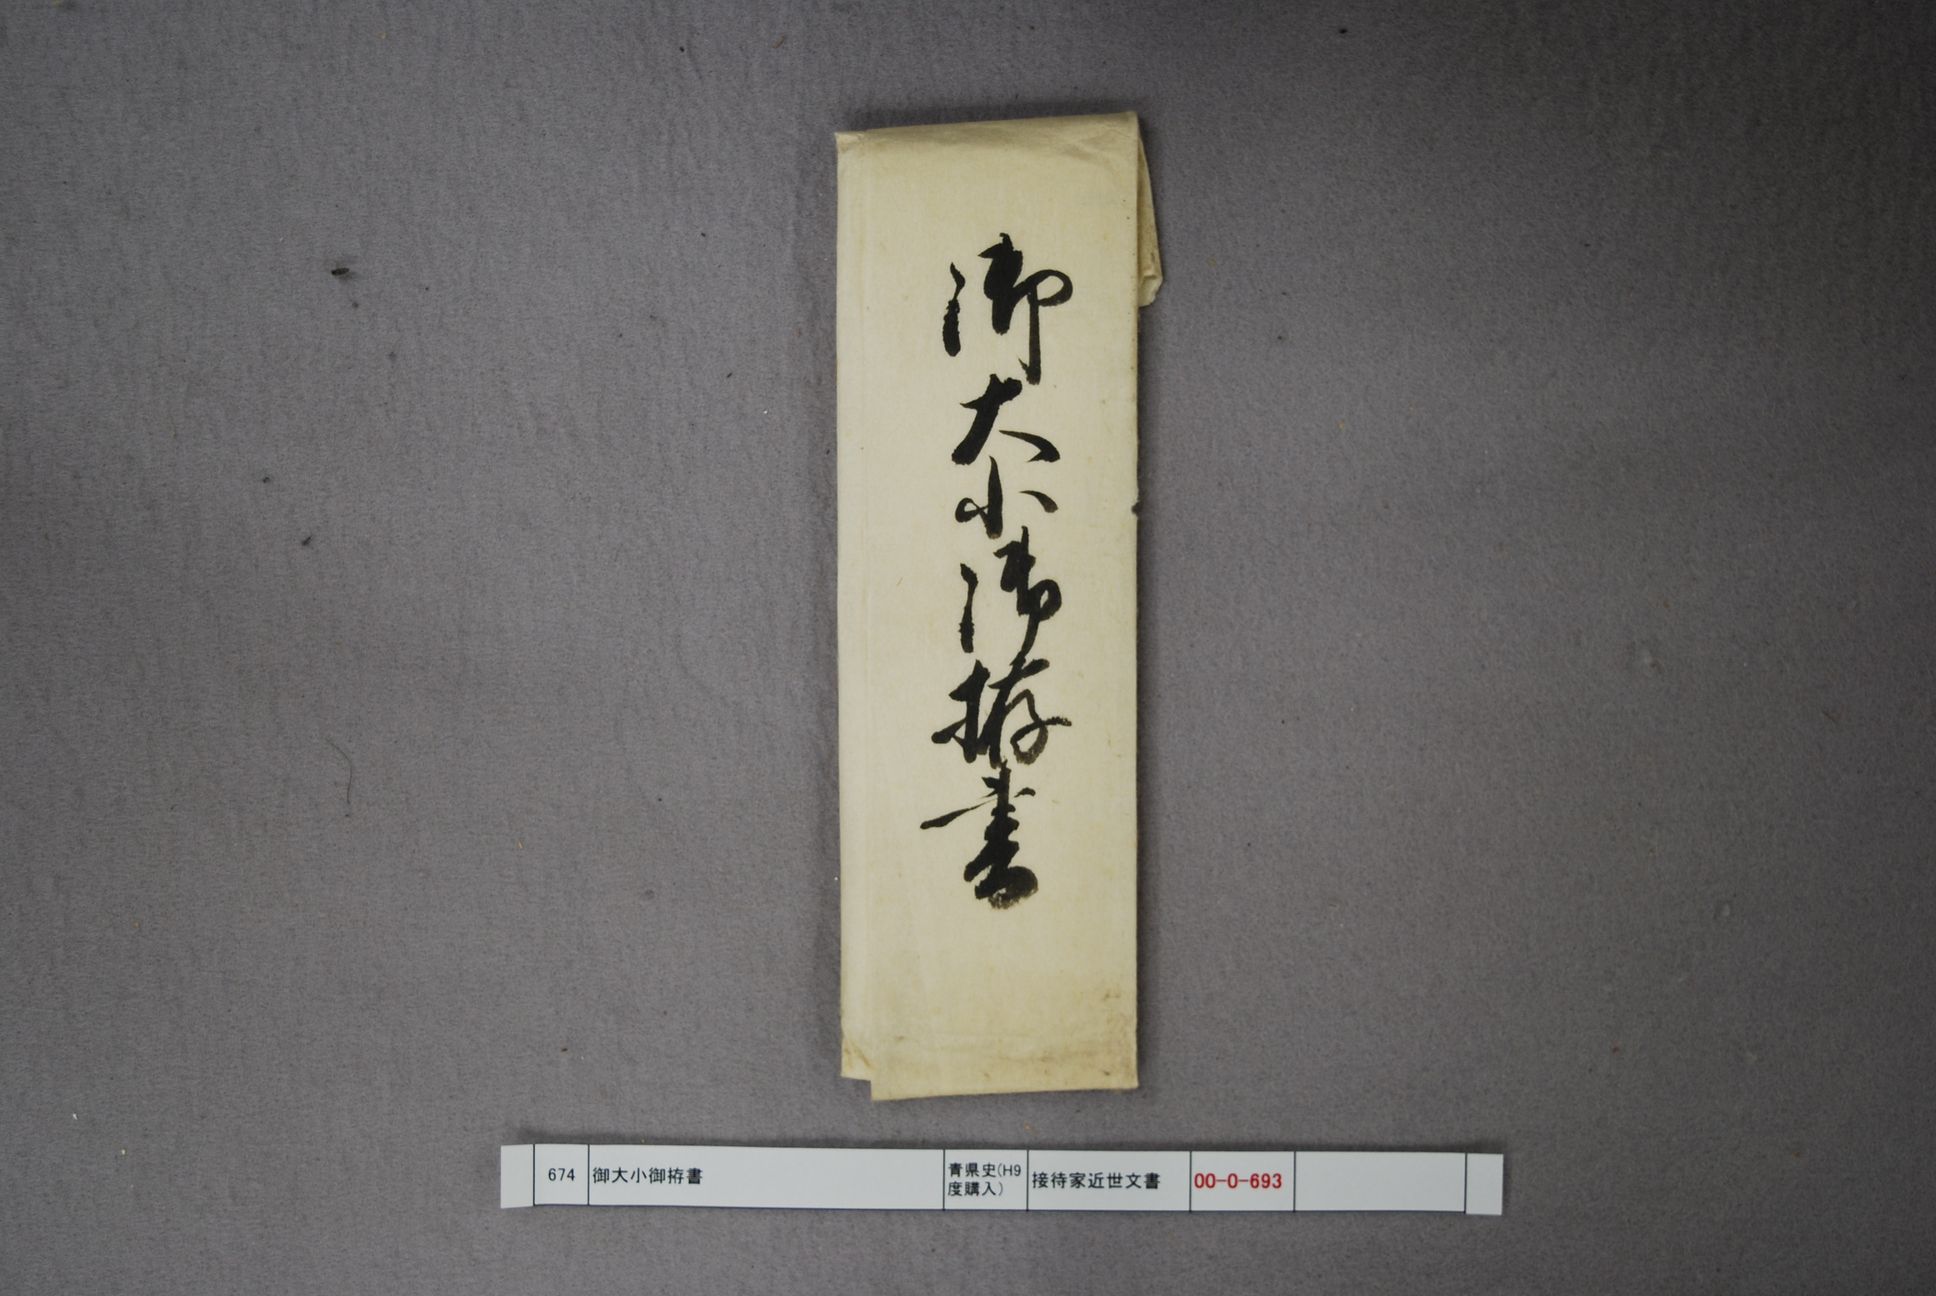 御大小御拵書
674
御大小御拵書
青県史(H9
度購入)
接待家近世文書
00-0-693